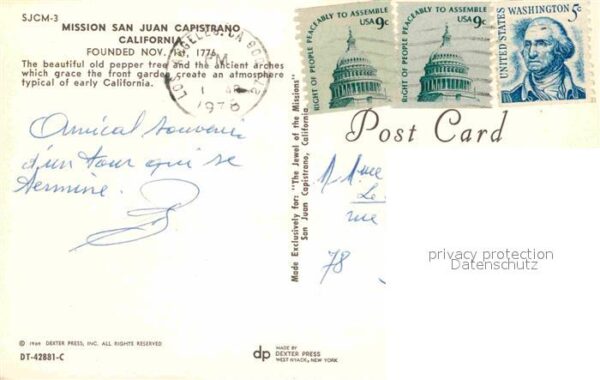 SJCM-3
MISSION SAN JUAN CAPISTRANO
CALIFORNIA
FOUNDED NOV. 1st, 1776
The beautiful old pepper tree and the ancient arches
which grace the front garden create an atmosphere
typical of early California.
LOS ANGELES, CA
PM
1976
RIGHT OF PEOPLE PEACEABLY TO ASSEMBLE
USA 9c
RIGHT OF PEOPLE PEACEABLY TO ASSEMBLE
USA 9c
UNITED STATES
WASHINGTON 5c
Post Card
Amical souvenir
d'un tour qui se
termine.
Made Exclusively for: "The Jewel of the Missions"
San Juan Capistrano, California.
Le
rue
78
privacy protection
Datenschutz
© 1969 DEXTER PRESS, INC. ALL RIGHTS RESERVED
DT-42881-C
dp
MADE BY
DEXTER PRESS
WEST NYACK, NEW YORK